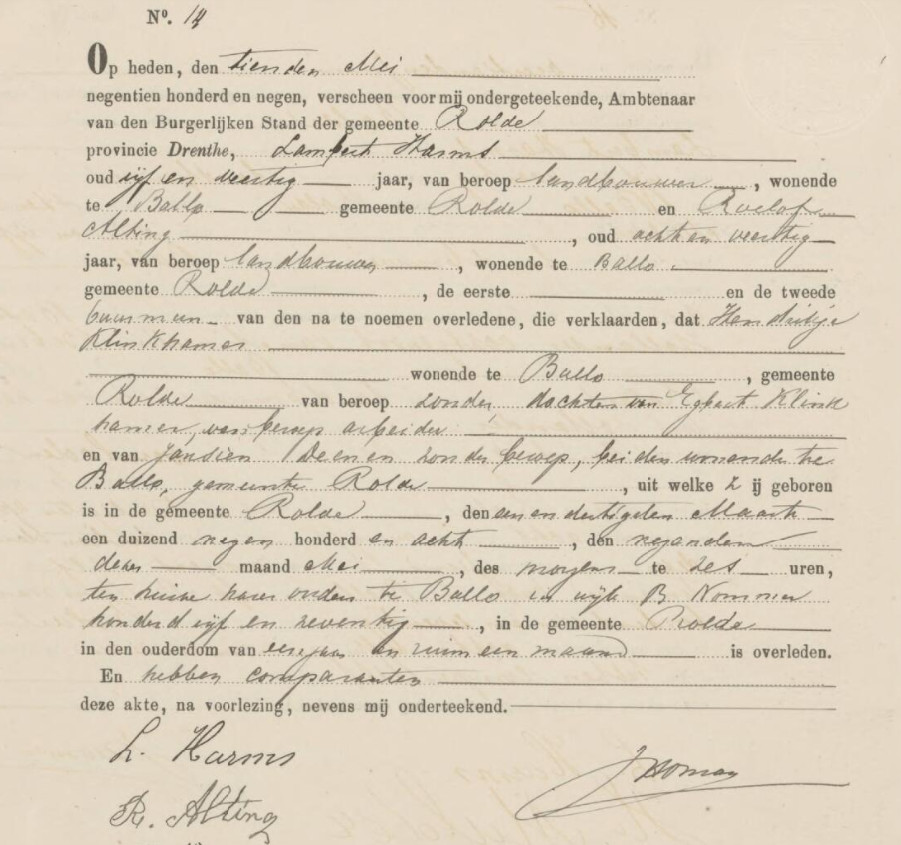 Nº. 14
Op heden, den tienden Mei
negentien honderd en negen, verscheen voor mij ondergeteekende, Ambtenaar
van den Burgerlijken Stand der gemeente Rolde
provincie Drenthe, Lambert Harms
oud vijf en veertig jaar, van beroep landbouwer, wonende
te Ballo gemeente Rolde en Roelof
Alting, oud acht en veertig
jaar, van beroep landbouwer, wonende te Ballo
gemeente Rolde, de eerste en de tweede
buurmeen van den na te noemen overledene, die verklaarden, dat Hendrikje
Klinkhamer
wonende te Ballo, gemeente
Rolde van beroep zonder, dochter van Egbert Klink
hamer, van beroep arbeider
en van Jansien Deenen zonder beroep, beiden wonende te
Ballo, gemeente Rolde, uit welke Z ij geboren
is in de gemeente Rolde, den een en dertigsten Maart
een duizend negen honderd en acht, den negenden
dezer maand Mei, des morgens te zes uren,
ten huize harer ouders te Ballo in wijk B Nommer
honderd vijf en zeventig, in de gemeente Rolde
in den ouderdom van een jaar en ruim een maand is overleden.
En hebben comparanten
deze akte, na voorlezing, nevens mij onderteekend.
L. Harms
JHoman
R. Alting